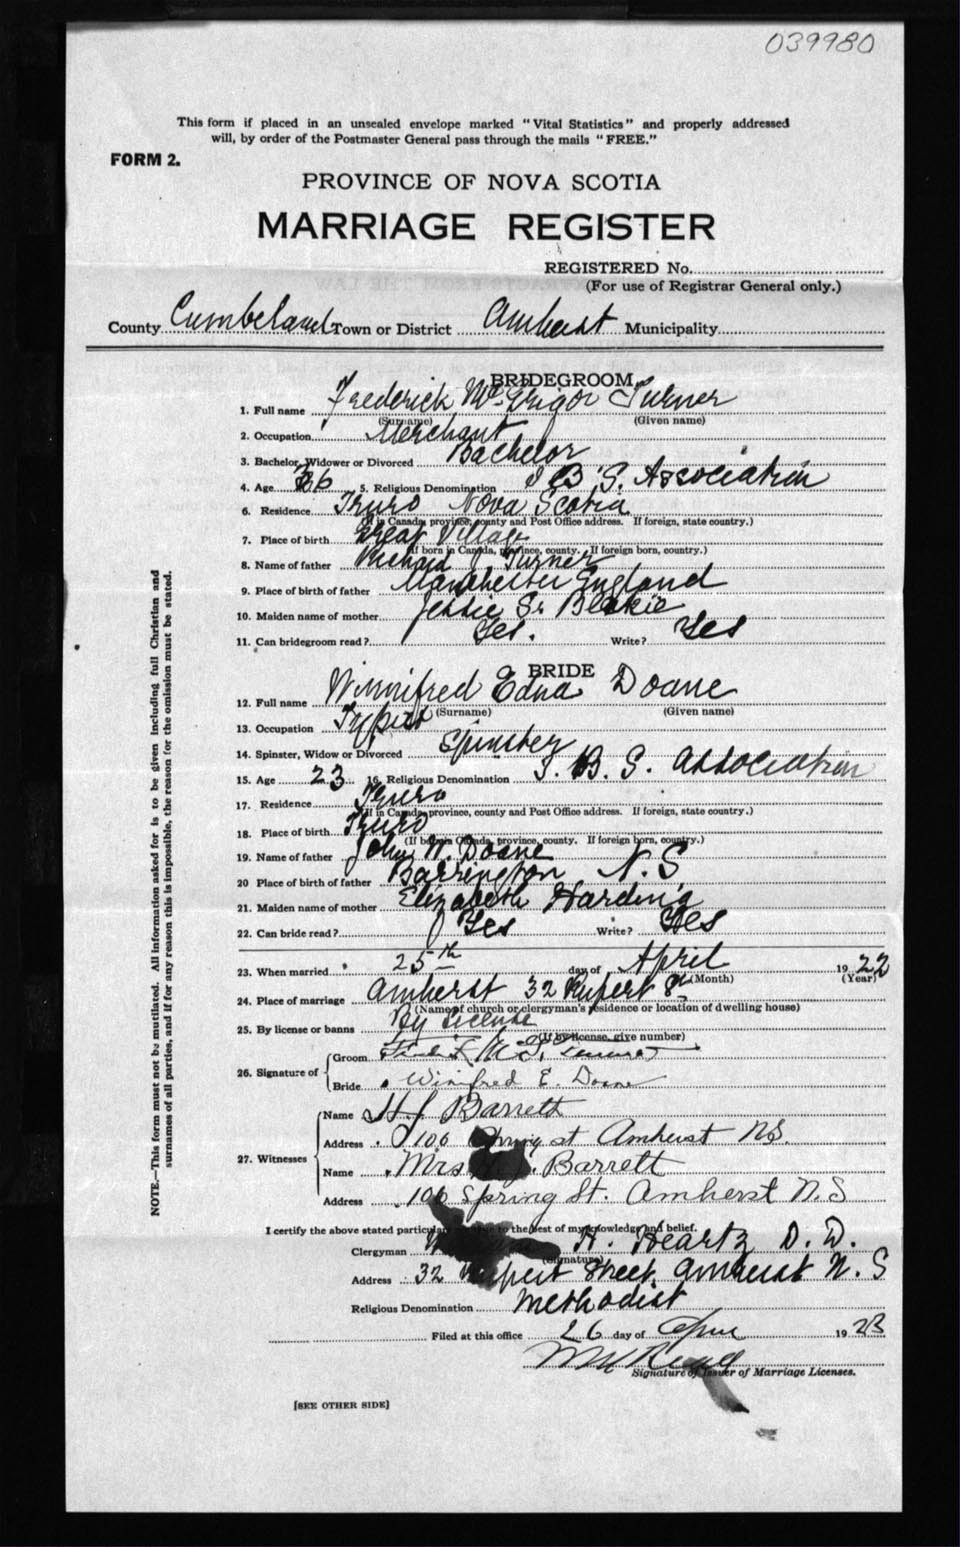 039980
This form if placed in an unsealed envelope marked "Vital Statistics" and properly addressed
will, by order of the Postmaster General pass through the mails "FREE."
FORM 2.
PROVINCE OF NOVA SCOTIA
MARRIAGE REGISTER
REGISTERED No.
(For use of Registrar General only.)
County Cumbeland Town or District Amherst Municipality
BRIDEGROOM
1. Full name Frederick McGrigor Turner
(Surname) (Given name)
2. Occupation Merchant
3. Bachelor, Widower or Divorced Bachelor
4. Age 36 5. Religious Denomination I B S. Association
6. Residence Truro Nova Scotia
(If in Canada, province, county and Post Office address. If foreign, state country.)
7. Place of birth Great Village
(If born in Canada, province, county. If foreign born, country.)
8. Name of father Richard J. Turner
9. Place of birth of father Manchester England
10. Maiden name of mother Jessie Blakie
11. Can bridegroom read? Yes. Write? Yes
BRIDE
12. Full name Winnifred Edna Doane
(Surname) (Given name)
13. Occupation Typist
14. Spinster, Widow or Divorced Spinster
15. Age 23 16. Religious Denomination I. B. S. Association
17. Residence Truro
(If in Canada, province, county and Post Office address. If foreign, state country.)
18. Place of birth Truro
(If born in Canada, province, county. If foreign born, country.)
19. Name of father John W. Doane
20 Place of birth of father Barrington N.S
21. Maiden name of mother Elizabeth Harding
22. Can bride read? Yes Write? Yes
23. When married 25th day of April 1922
(Month) (Year)
24. Place of marriage Amherst 32 Rupert St
(Name of church or clergyman's residence or location of dwelling house)
25. By license or banns By License
(If by license, give number)
26. Signature of
Groom McG. Turner
Bride Winifred E. Doane
27. Witnesses
Name H. J. Barrett
Address 106 Spring st Amherst NS.
Name Mrs H. J. Barrett
Address 106 Spring St. Amherst N.S
I certify the above stated particulars are true to the best of my knowledge and belief.
Clergyman H. Heartz D.D.
(Signature)
Address 32 Rupert Street, Amherst N.S
Religious Denomination Methodist
Filed at this office 26 day of April 1923
Signature of Issuer of Marriage Licenses.
[SEE OTHER SIDE]
NOTE.—This form must not be mutilated. All information asked for is to be given including full Christian and
surnames of all parties, and if for any reason this is impossible, the reason for the omission must be stated.